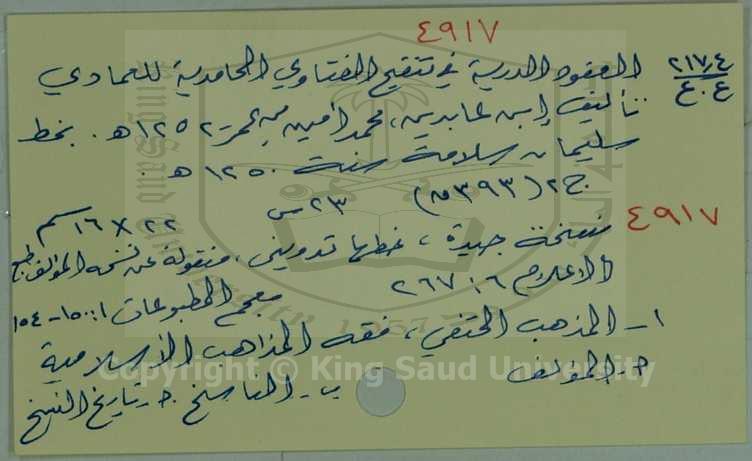 ٤٩١٧
٢١٧,٤
ع.ع
العقود الدرية في تنقيح الفتاوي الحامدية للعمادي
تأليف ابن عابدين، محمد أمين بن عمر - ١٢٥٢ هـ. بخط
سليمان سلامة سنة ١٢٥٠ هـ.
ج٢ (٣٩٣ ق) ٢٣ س ٢٢ × ١٦ سم
٤٩١٧
نسخة جيدة، خطها تدويني، منقولة عن نسخة المؤلف، طبع
الاعلام ٦: ٢٦٧ معجم المطبوعات ١: ١٥٠-١٥٤
١- المذهب الحنفي، فقه المذاهب الأسلامية
أ- المؤلف ب- الناسخ ج- تاريخ النسخ
Copyright © King Saud University